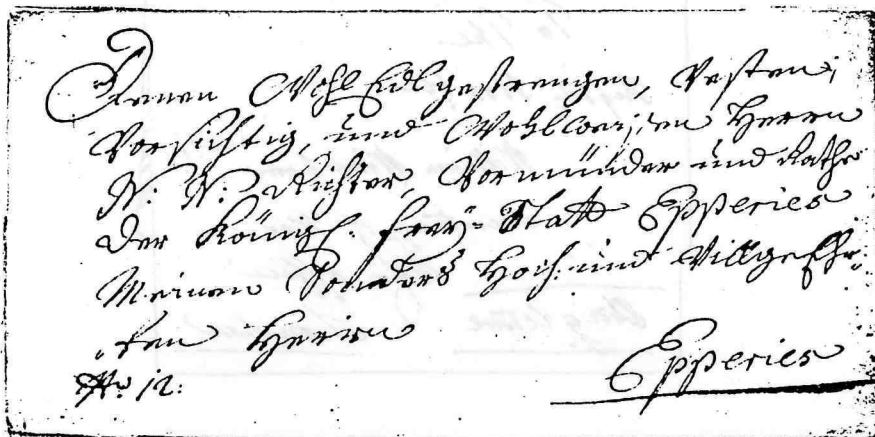 Denen WohlEdlgestrengen, Vesten,
Vorsichtig, und Wohlweisen Herrn
N: N: Richter, Vormünder und Raths
der Königl. Frey=Statt Epperies
Meinen Sonders Hoch: und VillgeEhr=
=ten Herrn
Epperies
No 12: